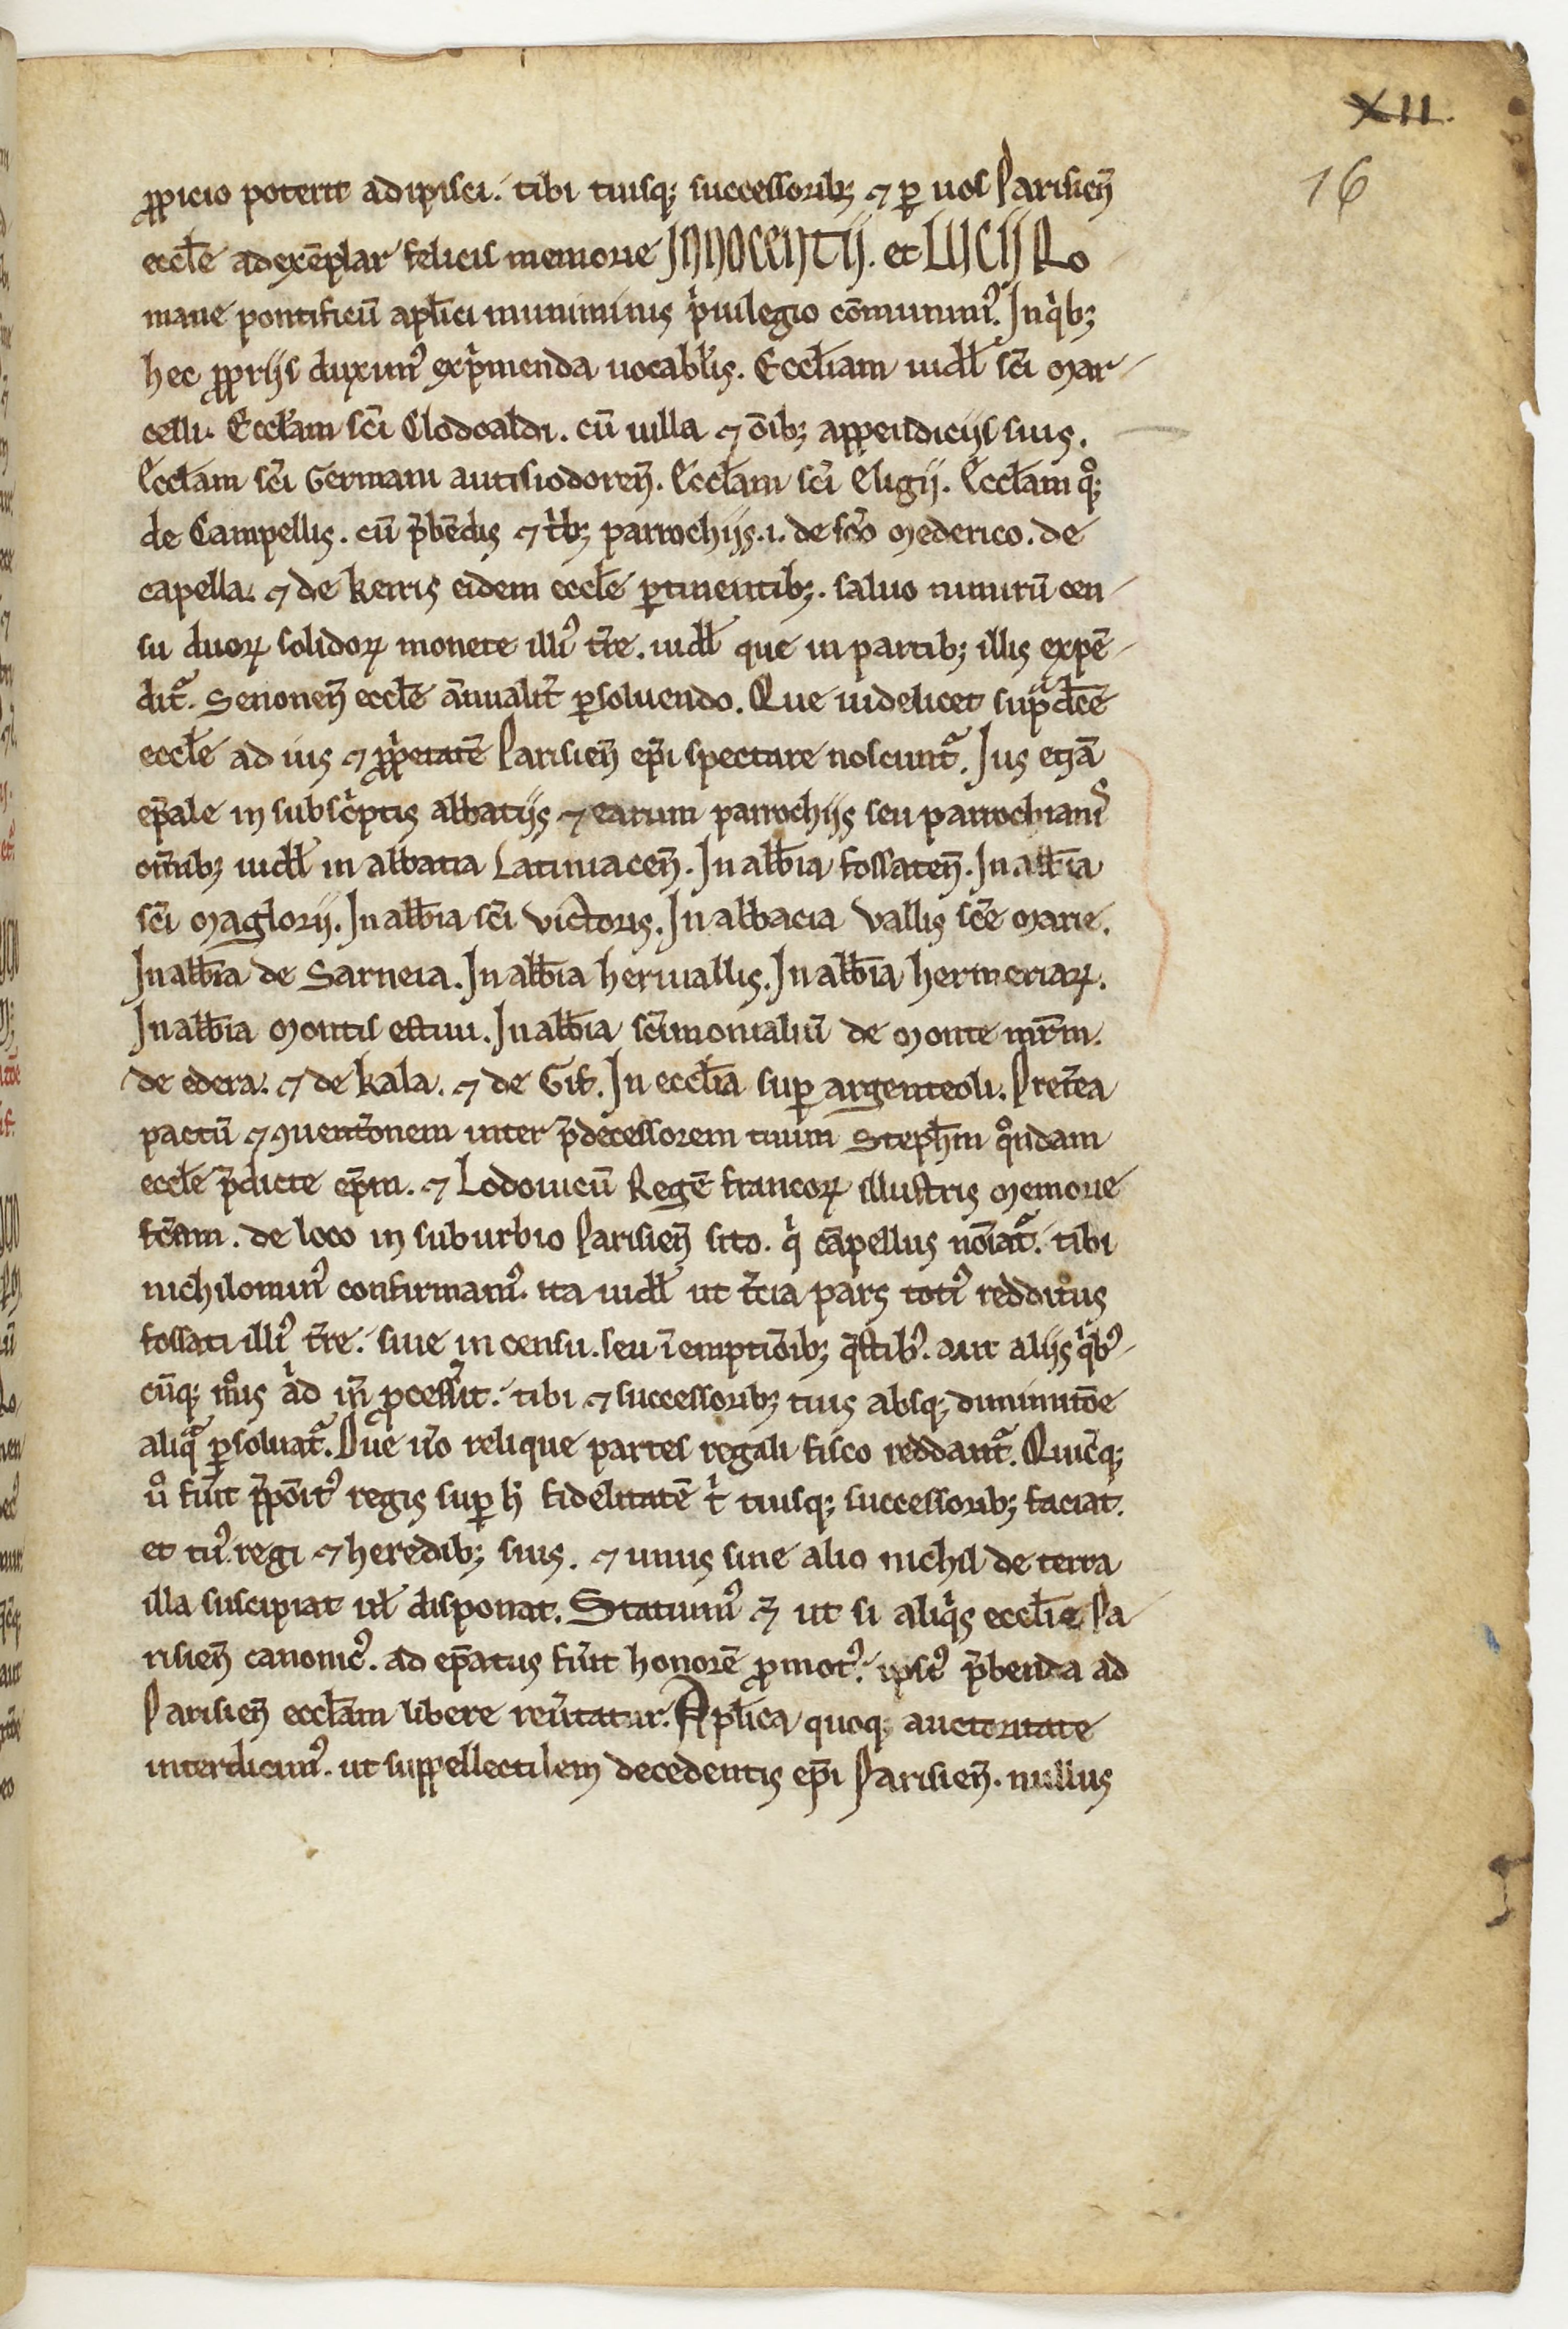 XII.
16
ꝓpicio poterit adipisci. tibi tuisq; successorib; ⁊ ꝑ uos Parisieñ
eccl̄e ad exēplar felicis memorie INNOCENTII. et LUCII Ro
mane pontificū apl̄ici muniminis p'uilegio cōmunim'. In q'b;
hec ꝓpriis duxim' exp'menda uocabl'is. Eccl̄iam uidel̄ sc̄i Mar
celli. Eccl̄am sc̄i Clodoaldi. cū uilla ⁊ ōib; appendiciis suis.
Eccl̄am sc̄i Germani autisiodoreñ. Eccl̄am sc̄i Eligii. Eccl̄am q°;
de Campellis. cū p̄bēdis ⁊ t'b; parrochiis .i. de sc̄o Mederico. de
capella. ⁊ de kerris eidem eccl̄e ꝑtinentib;. saluo nimirū cen
su duoꝝ solidoꝝ monete illi' t̄re. uidel̄ que in partib; illis expē
dit᷑. Senoneñ eccl̄e ānualit̄ ꝑsoluendo. Que uidelicet supᷓdc̄e
eccl̄e ad ius ⁊ ꝓp'etatē Parisieñ ep̄i spectare noscunt᷑. Ius etiā
ep̄ale in subsc'ptis abbatiis ⁊ earum parrochiis seu parrochianis
om̄ib; uidel̄ in abbatia Latiniaceñ. In abb̄ia fossateñ. In abb̄ia
sc̄i Maglorii. In abb̄ia sc̄i Victoris. In abbacia Vallis sc̄e Marie.
In abb̄ia de Sarneia. In abb̄ia heriuallis. In abb̄ia hermeriaꝝ.
In abb̄ia Montis estiui. In abb̄ia sc̄imonialiū de Monte mr̄m.
de edera. ⁊ de kala. ⁊ de Gif. In eccl̄ia sup argenteoli. Pret̄ea
pactū ⁊ ꝯuent̄onem inter p̄decessorem tuum Steph̄m q°ndam
eccl̄e p̄dicte ep̄m. ⁊ Lodouicū Regē francoꝝ illustris memorie
fc̄am. de loco in suburbio Parisieñ sito. q' cāpellus nōiat᷑. tibi
nichilomin' confirmam'. ita uidel̄ ut t̄cia pars toti' redditus
fossati illi' t̄re. siue in censu. seu ī emptiōib; q̄stib'. aut aliis q'b'
cūq; m°is ad iñ ꝓcess̄it. tibi ⁊ successorib; tuis absq; diminutōe
aliqᷓ ꝑsoluat᷑. Due u̅o relique partes regali fisco reddant᷑. Quicq;
u° fūit p̄pōit' regis sup h' fidelitatē t' tuisq; successorib; faciat.
et tu' regi ⁊ heredib; suis. ⁊ unus sine alio nichil de terra
illa suscipiat ul̄ disponat. Statuim' ⁊ ut si aliq's eccl̄ie Pa
risieñ canonic'. ad ep̄atus fūit honorē ꝓmot'. ipsi' p̄benda ad
Parisieñ eccl̄am libere reūtatur. Apl̄ica quoq; auctoritate
interdicim'. ut suppellectilem decedentis ep̄i Parisieñ. nullus